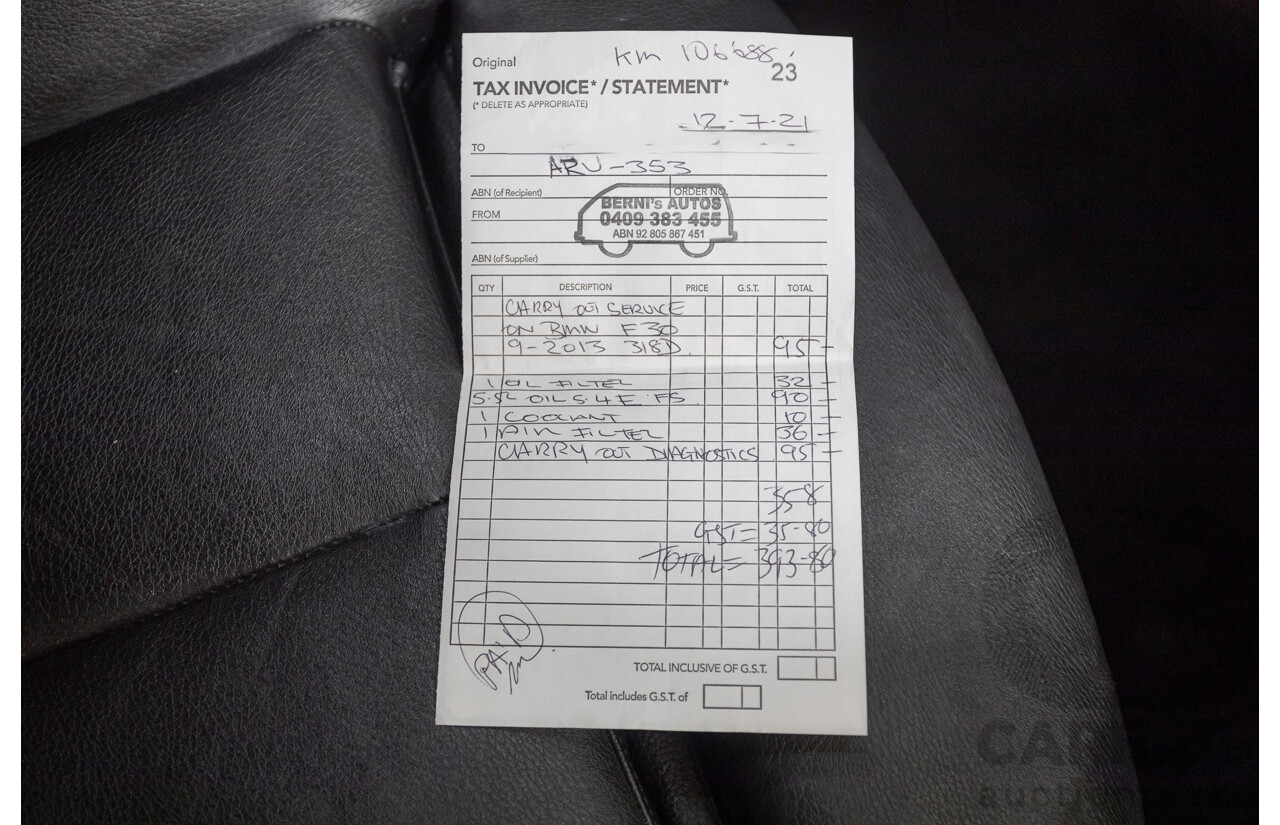 Original
KM 106688
23
TAX INVOICE* / STATEMENT*
(* DELETE AS APPROPRIATE)
12-7-21
TO
ARU-353
ABN (of Recipient)
ORDER NO.
BERNI's AUTOS
FROM
0409 383 455
ABN 92 805 867 451
ABN (of Supplier)
QTY DESCRIPTION PRICE G.S.T. TOTAL
CARRY OUT SERVICE
ON BMW F30
9-2013 318D. 95-
1 OIL FILTER 32-
5.5L OIL 5.4 E FS 90-
1 COOLANT 10-
1 AIR FILTER 36-
CARRY OUT DIAGNOSTICS 95-
358
GST= 35-80
TOTAL= 393-80
PAID
TOTAL INCLUSIVE OF G.S.T.
Total includes G.S.T. of